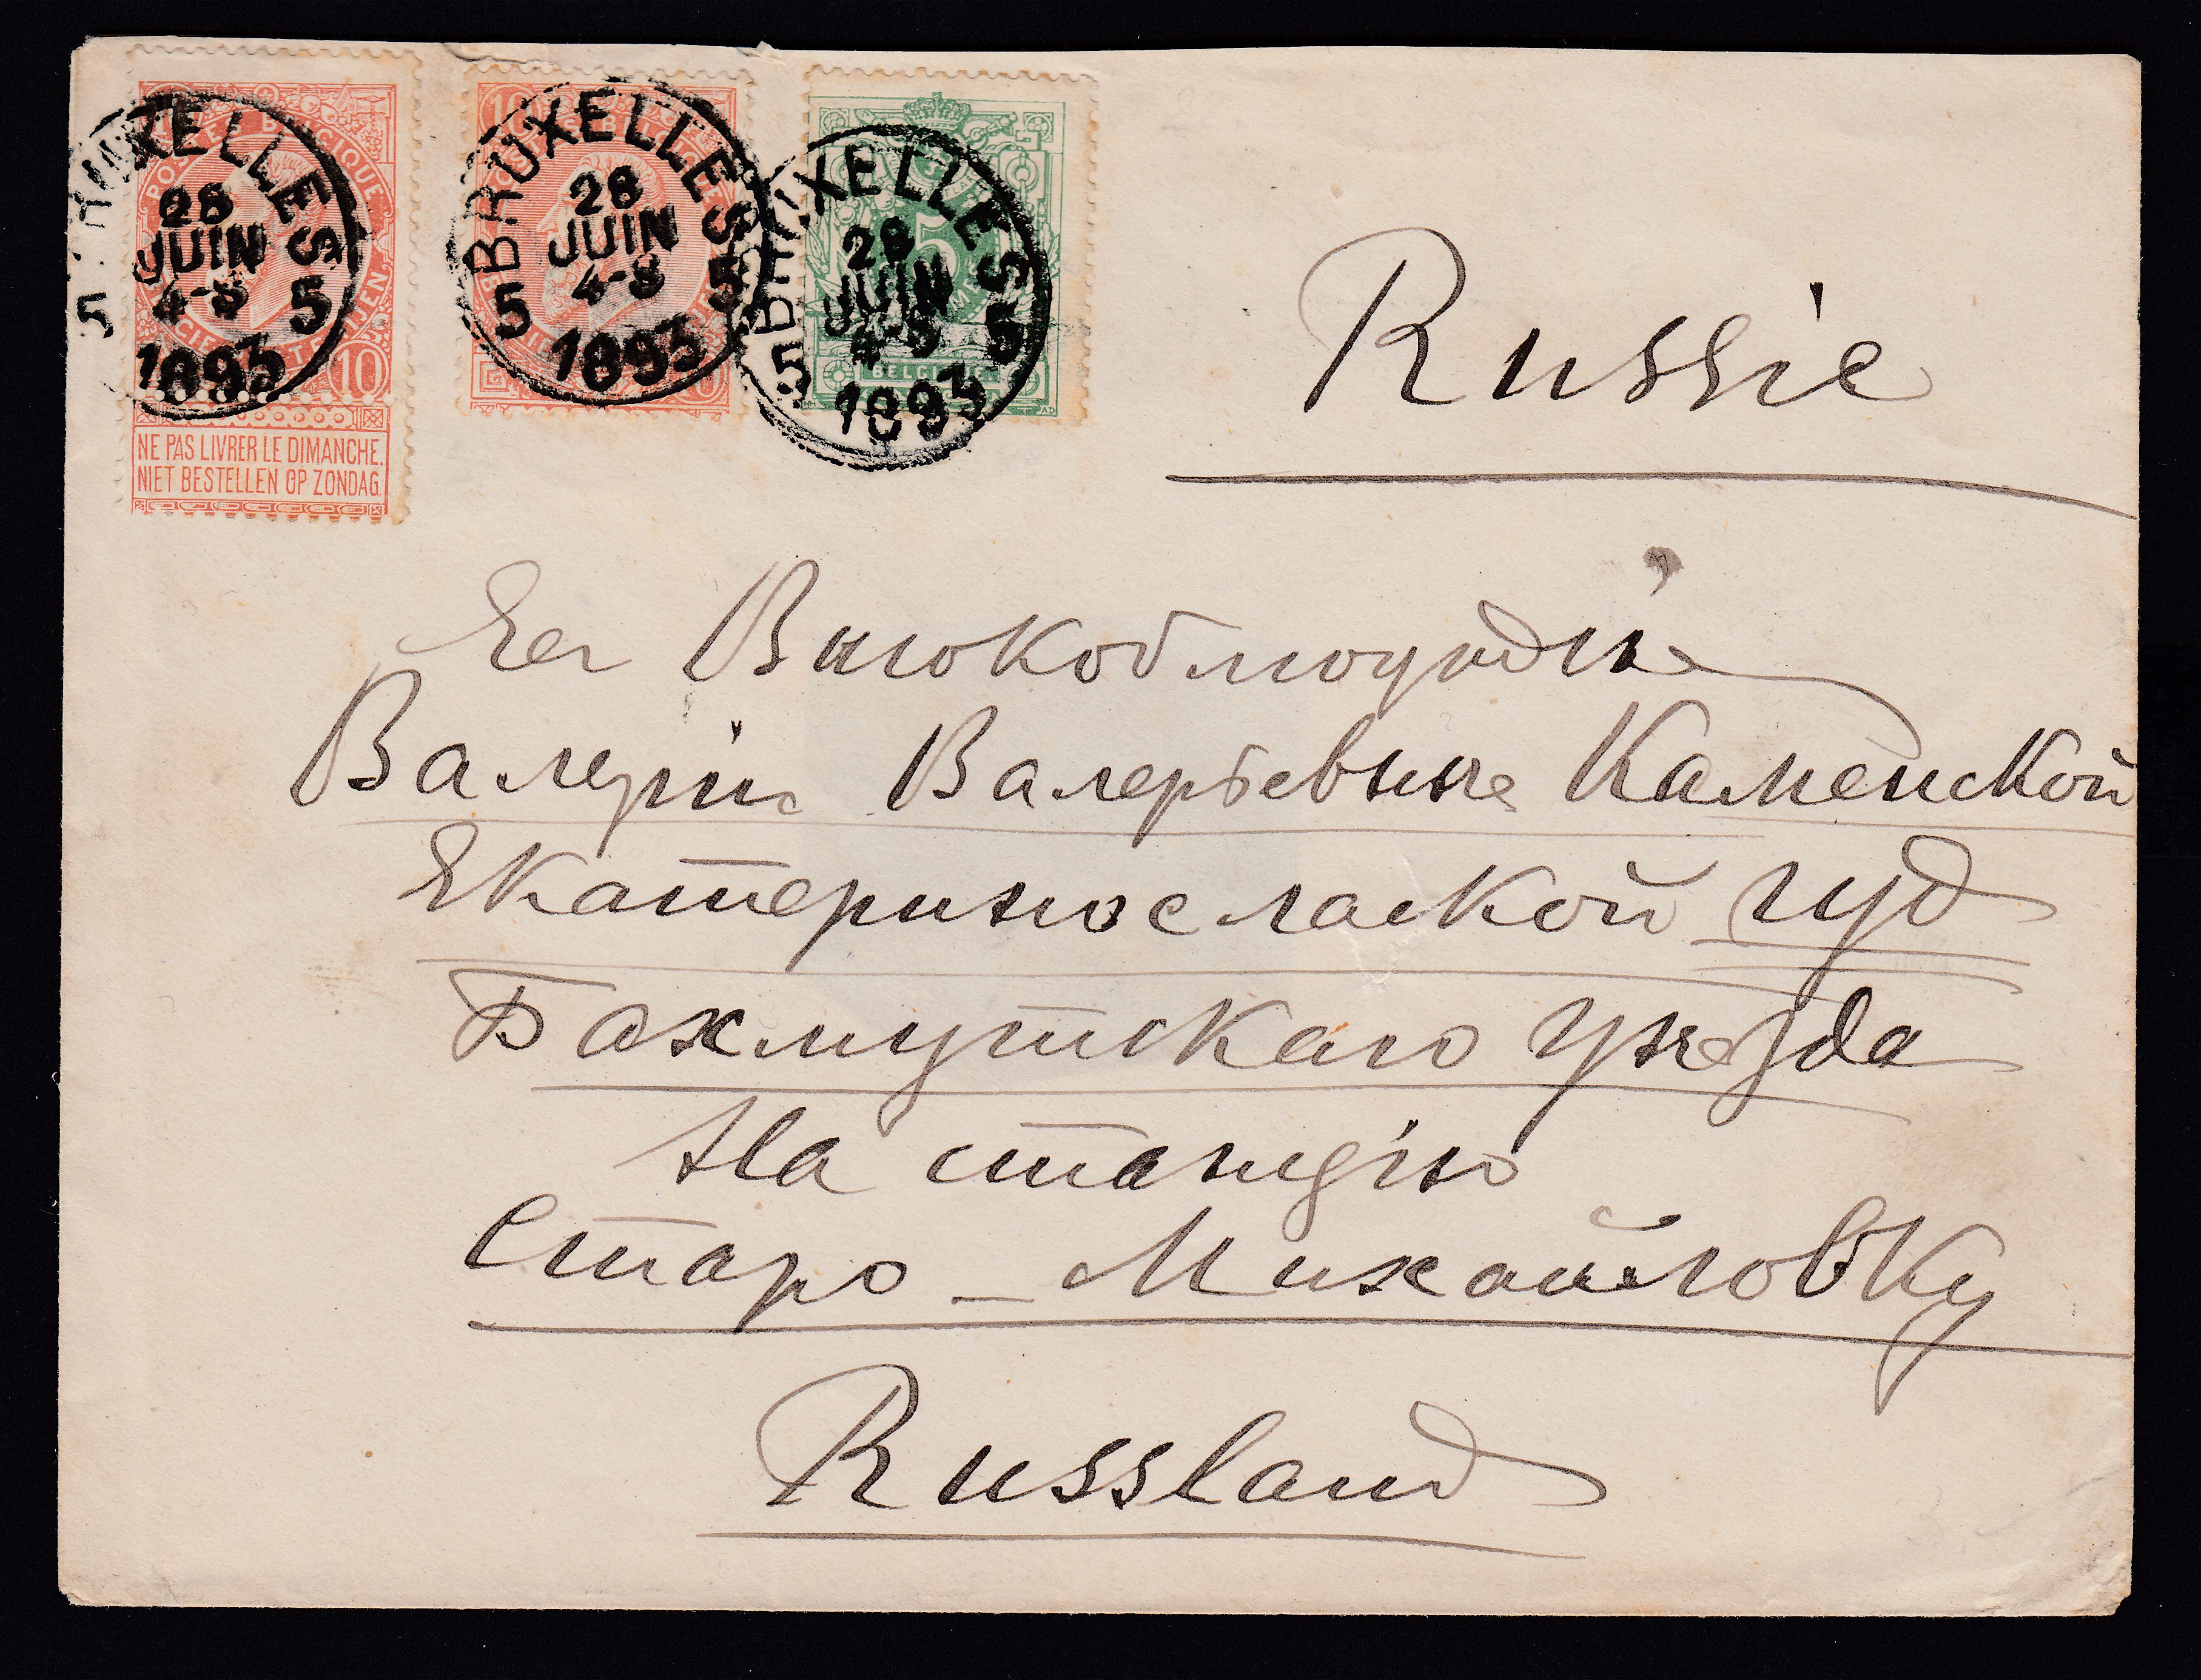 POSTES BELGIQUE
BRUXELLES
JUIN
4-8
5 5
1893
10
NE PAS LIVRER LE DIMANCHE.
NIET BESTELLEN OP ZONDAG.
10
BRUXELLES
28
JUIN
4-8
5 5
1893
5
BRUXELLES
28
JUIN
5 5
BELGIQUE
1893
Russie
Ея Высокоблагородiе
Валерiи Валерьевне Каменской
Екатеринославской губ
Бахмутскаго уезда
На станцiю
Старо-Михайловку
Russland